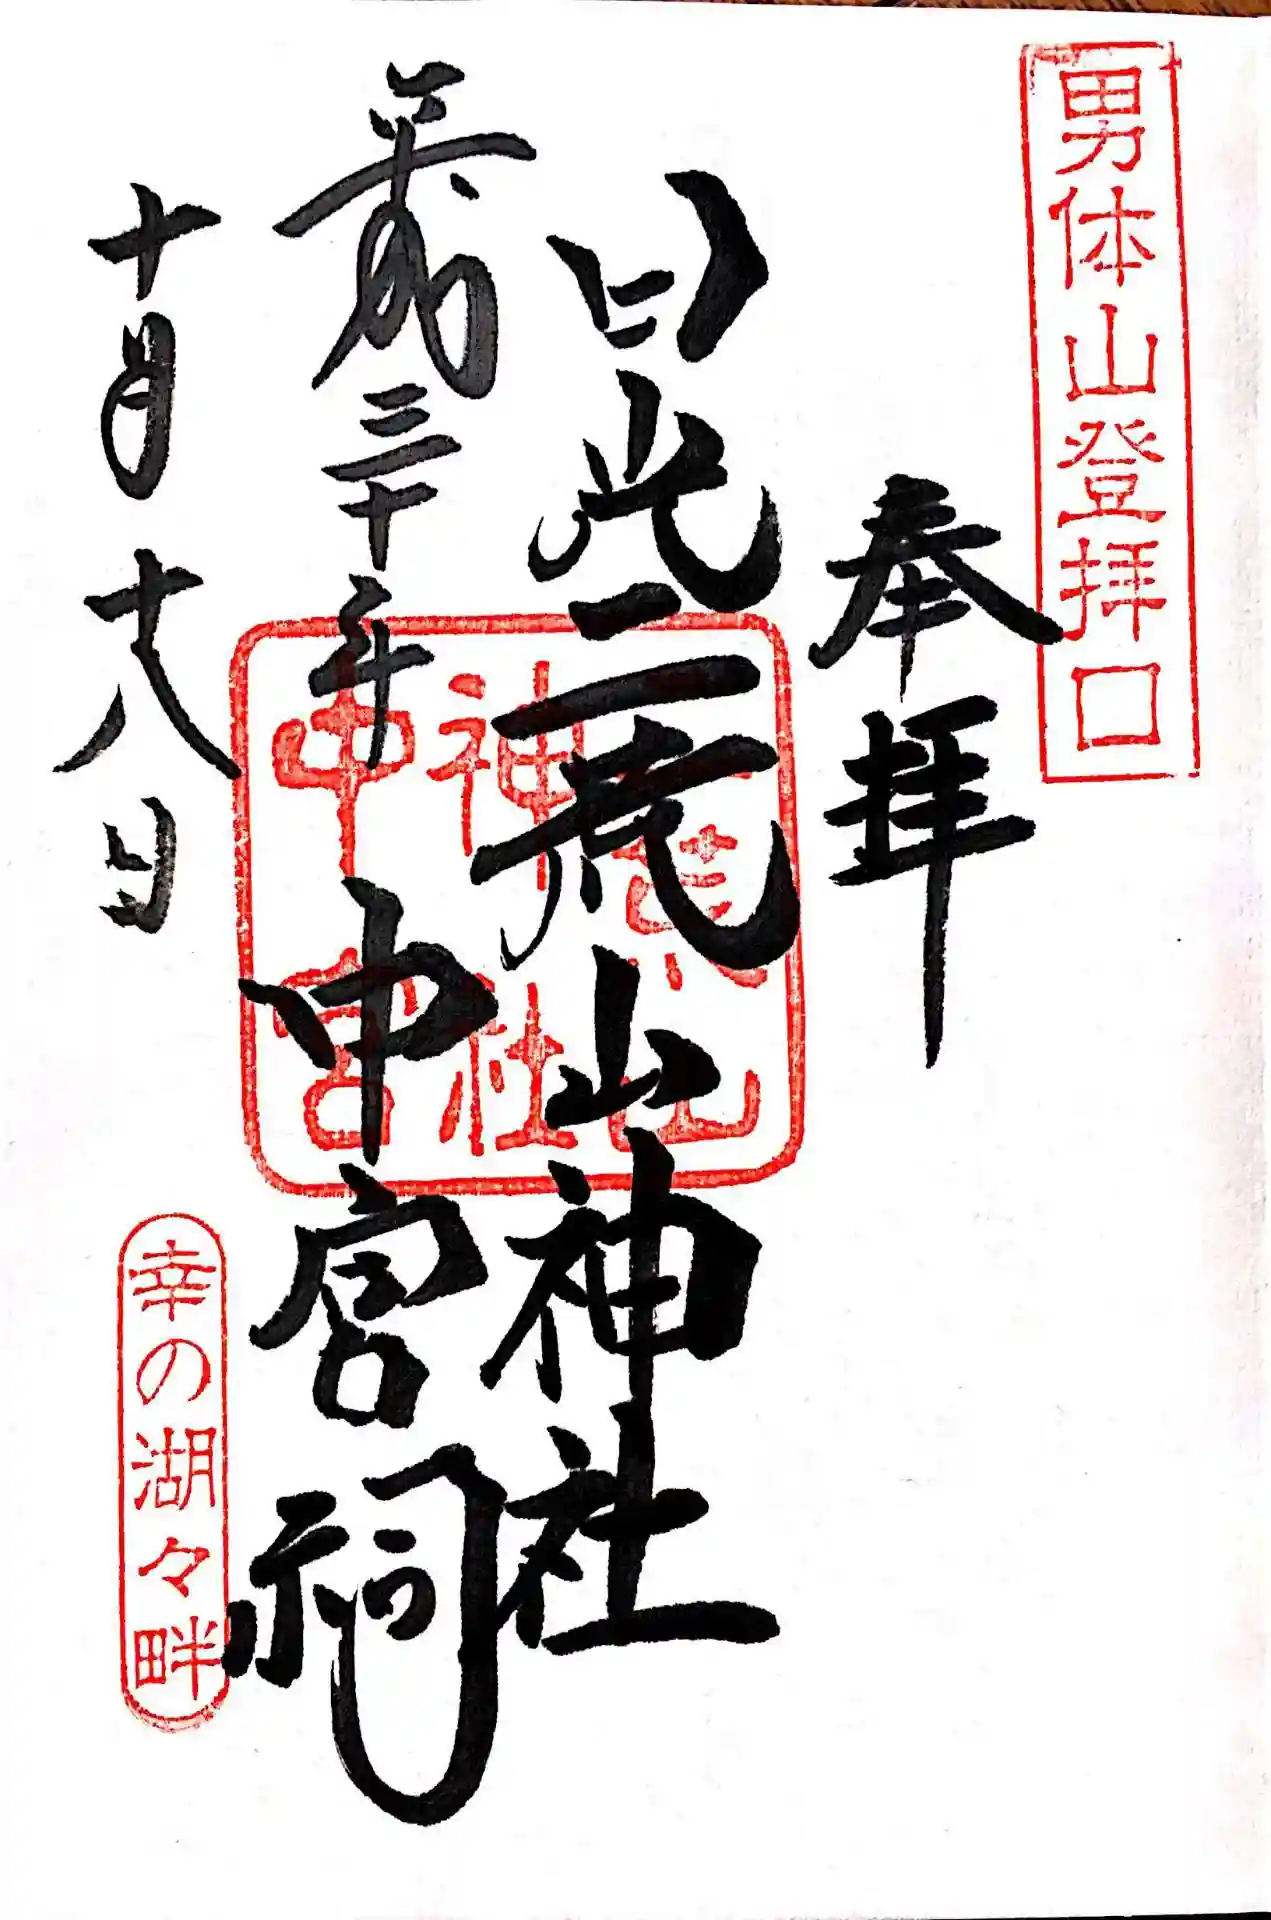 男体山登拝口
奉拝
日光二荒山神社
中宮祠
平成三十年
十月十八日
二荒山
神社
中宮
幸の湖々畔